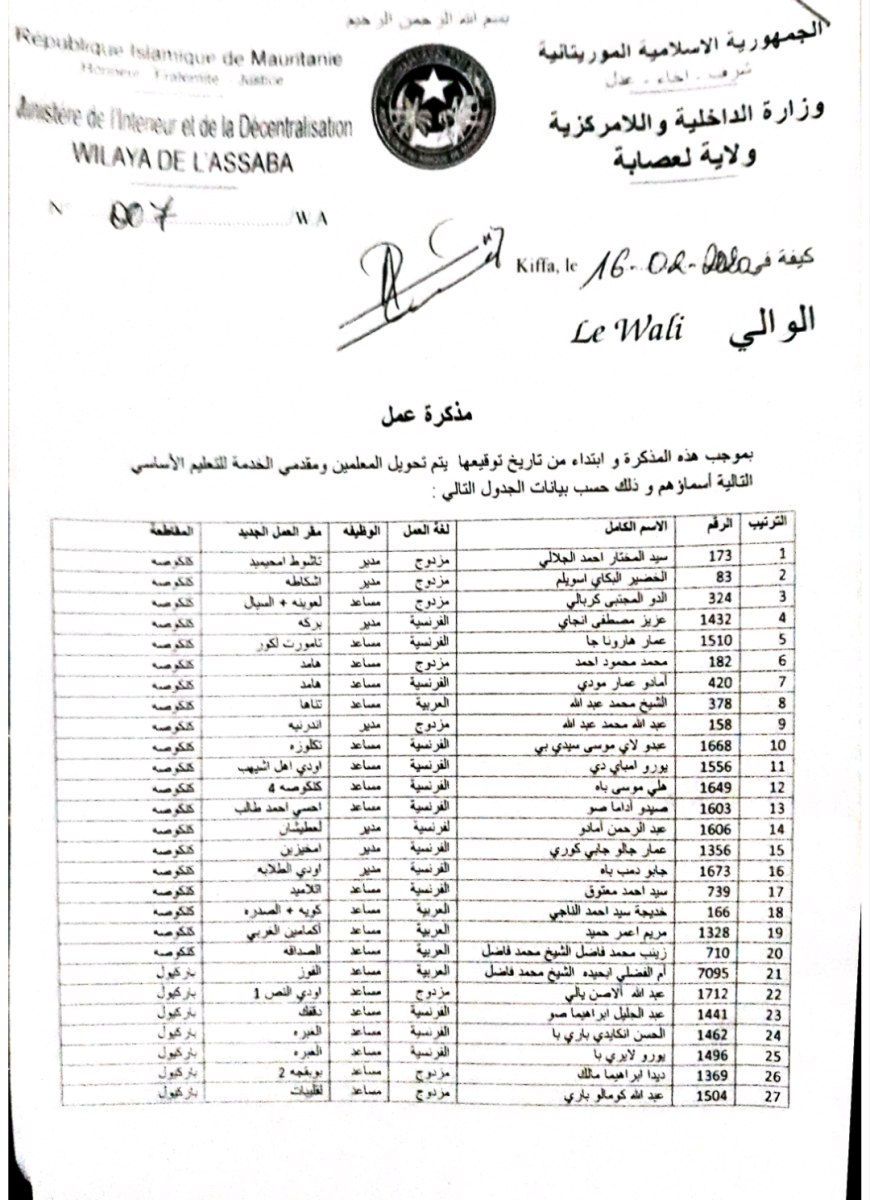 بسم الله الرحمن الرحيم
République Islamique de Mauritanie
Honneur - Fraternité - Justice
Ministère de l'Interieur et de la Décentralisation
WILAYA DE L'ASSABA
الجمهورية الاسلامية الموريتانية
شرف - اخاء - عدل
وزارة الداخلية واللامركزية
ولاية لعصابة
N° 007 /WA
Kiffa, le 16-02-2020 كيفة في
Le Wali الوالي
مذكرة عمل
بموجب هذه المذكرة و ابتداء من تاريخ توقيعها يتم تحويل المعلمين ومقدمي الخدمة للتعليم الأساسي
التالية أسماؤهم و ذلك حسب بيانات الجدول التالي :
الترتيب الرقم الاسم الكامل لغة العمل الوظيفه مقر العمل الجديد المقاطعة
1 173 سيد المختار احمد الجلالي مزدوج مدير تاشوط امحيميد كنكوصه
2 83 الخضير البكاي اسويلم مزدوج مدير اشكاطه كنكوصه
3 324 الدو المجتبى كربالي مزدوج مساعد لعوينه + السيال كنكوصه
4 1432 عزيز مصطفى انجاي الفرنسية مدير بركه كنكوصه
5 1510 عمار هارونا جا الفرنسية مساعد تامورت لكور كنكوصه
6 182 محمد محمود احمد مزدوج مساعد هامد كنكوصه
7 420 أمادو عمار مودي الفرنسية مساعد هامد كنكوصه
8 378 الشيخ محمد عبد الله العربية مساعد تناها كنكوصه
9 158 عبد الله محمد عبد الله مزدوج مدير اندرنيه كنكوصه
10 1668 عبدو لاي موسى سيدي بي الفرنسية مساعد تكلوزه كنكوصه
11 1556 يورو امباي دي الفرنسية مساعد اودي اهل اشيهب كنكوصه
12 1649 هلي موسى باه الفرنسية مساعد كنكوصه 4 كنكوصه
13 1603 صيدو أداما صو الفرنسية مساعد احسي احمد طالب كنكوصه
14 1606 عبد الرحمن أمادو لفرنسية مدير لعطيشان كنكوصه
15 1356 عمار جالو جابي كوري الفرنسية مدير امخيزين كنكوصه
16 1673 جابو دمب باه الفرنسية مدير اودي الطلابه كنكوصه
17 739 سيد احمد معتوق الفرنسية مساعد اتلاميد كنكوصه
18 166 خديجة سيد احمد الناجي العربية مساعد كوبه + الصدره كنكوصه
19 1328 مريم اعمر حميد العربية مساعد أكمامين الغربي كنكوصه
20 710 زينب محمد فاضل الشيخ محمد فاضل العربية مساعد الصداقه كنكوصه
21 7095 أم الفضلي ابحيده الشيخ محمد فاضل العربية مساعد الفوز باركيول
22 1712 عبد الله ألاصن يالي مزدوج مساعد اودي النص 1 باركيول
23 1441 عبد الجليل ابراهيما صو الفرنسية مساعد دقفك باركيول
24 1462 الحسن انكايدي باري با الفرنسية مساعد العبره باركيول
25 1496 يورو لايري با الفرنسية مساعد العبره باركيول
26 1369 ديدا ابراهيما مالك مزدوج مساعد بوبقجه 2 باركيول
27 1504 عبد الله كومالو باري مزدوج مساعد لقليبات باركيول